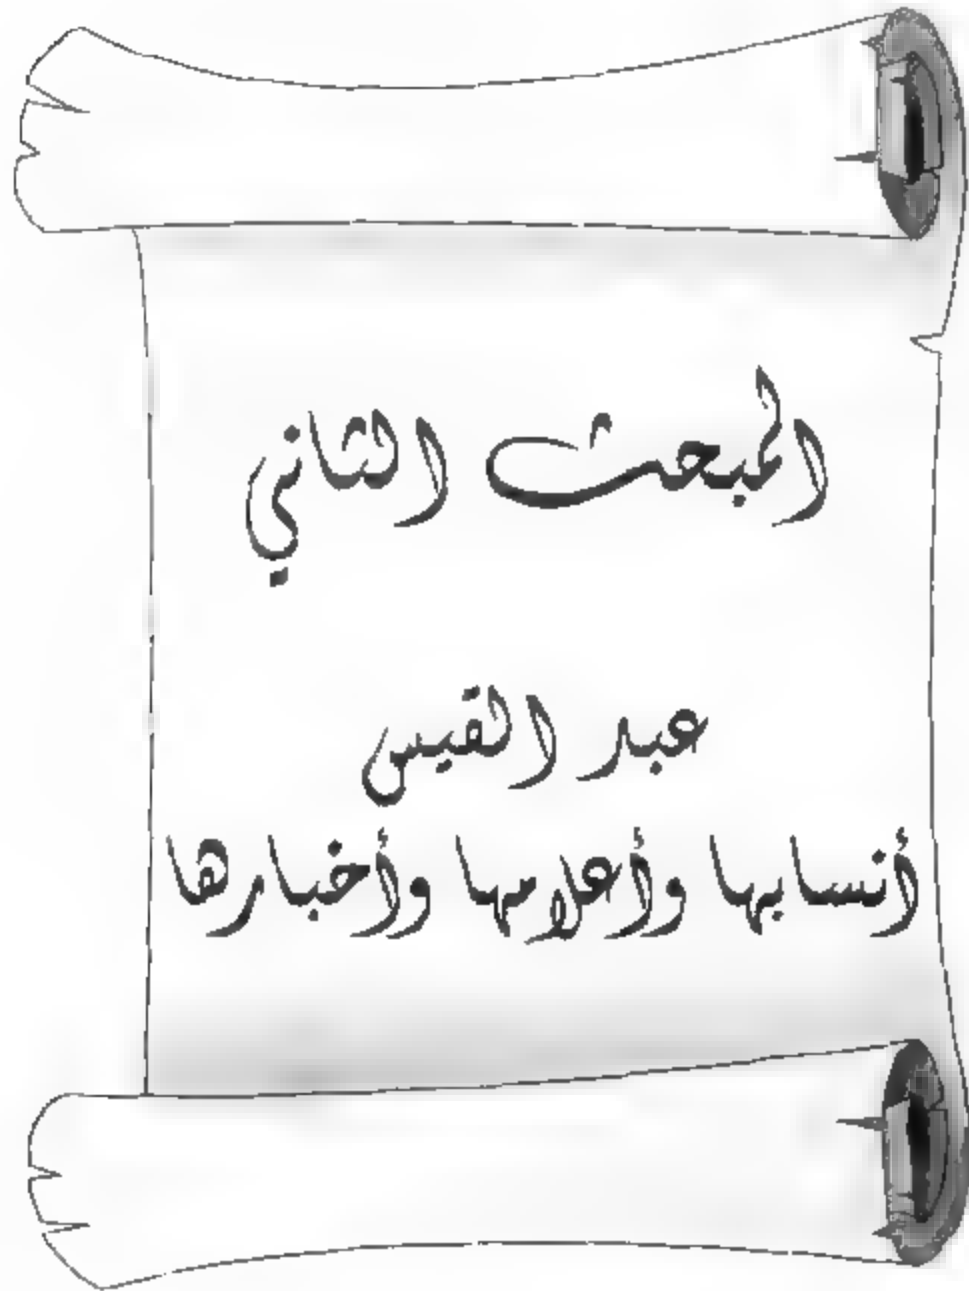 المبحث الثاني
عبد القيس
أنسابها وأعلامها وأخبارها